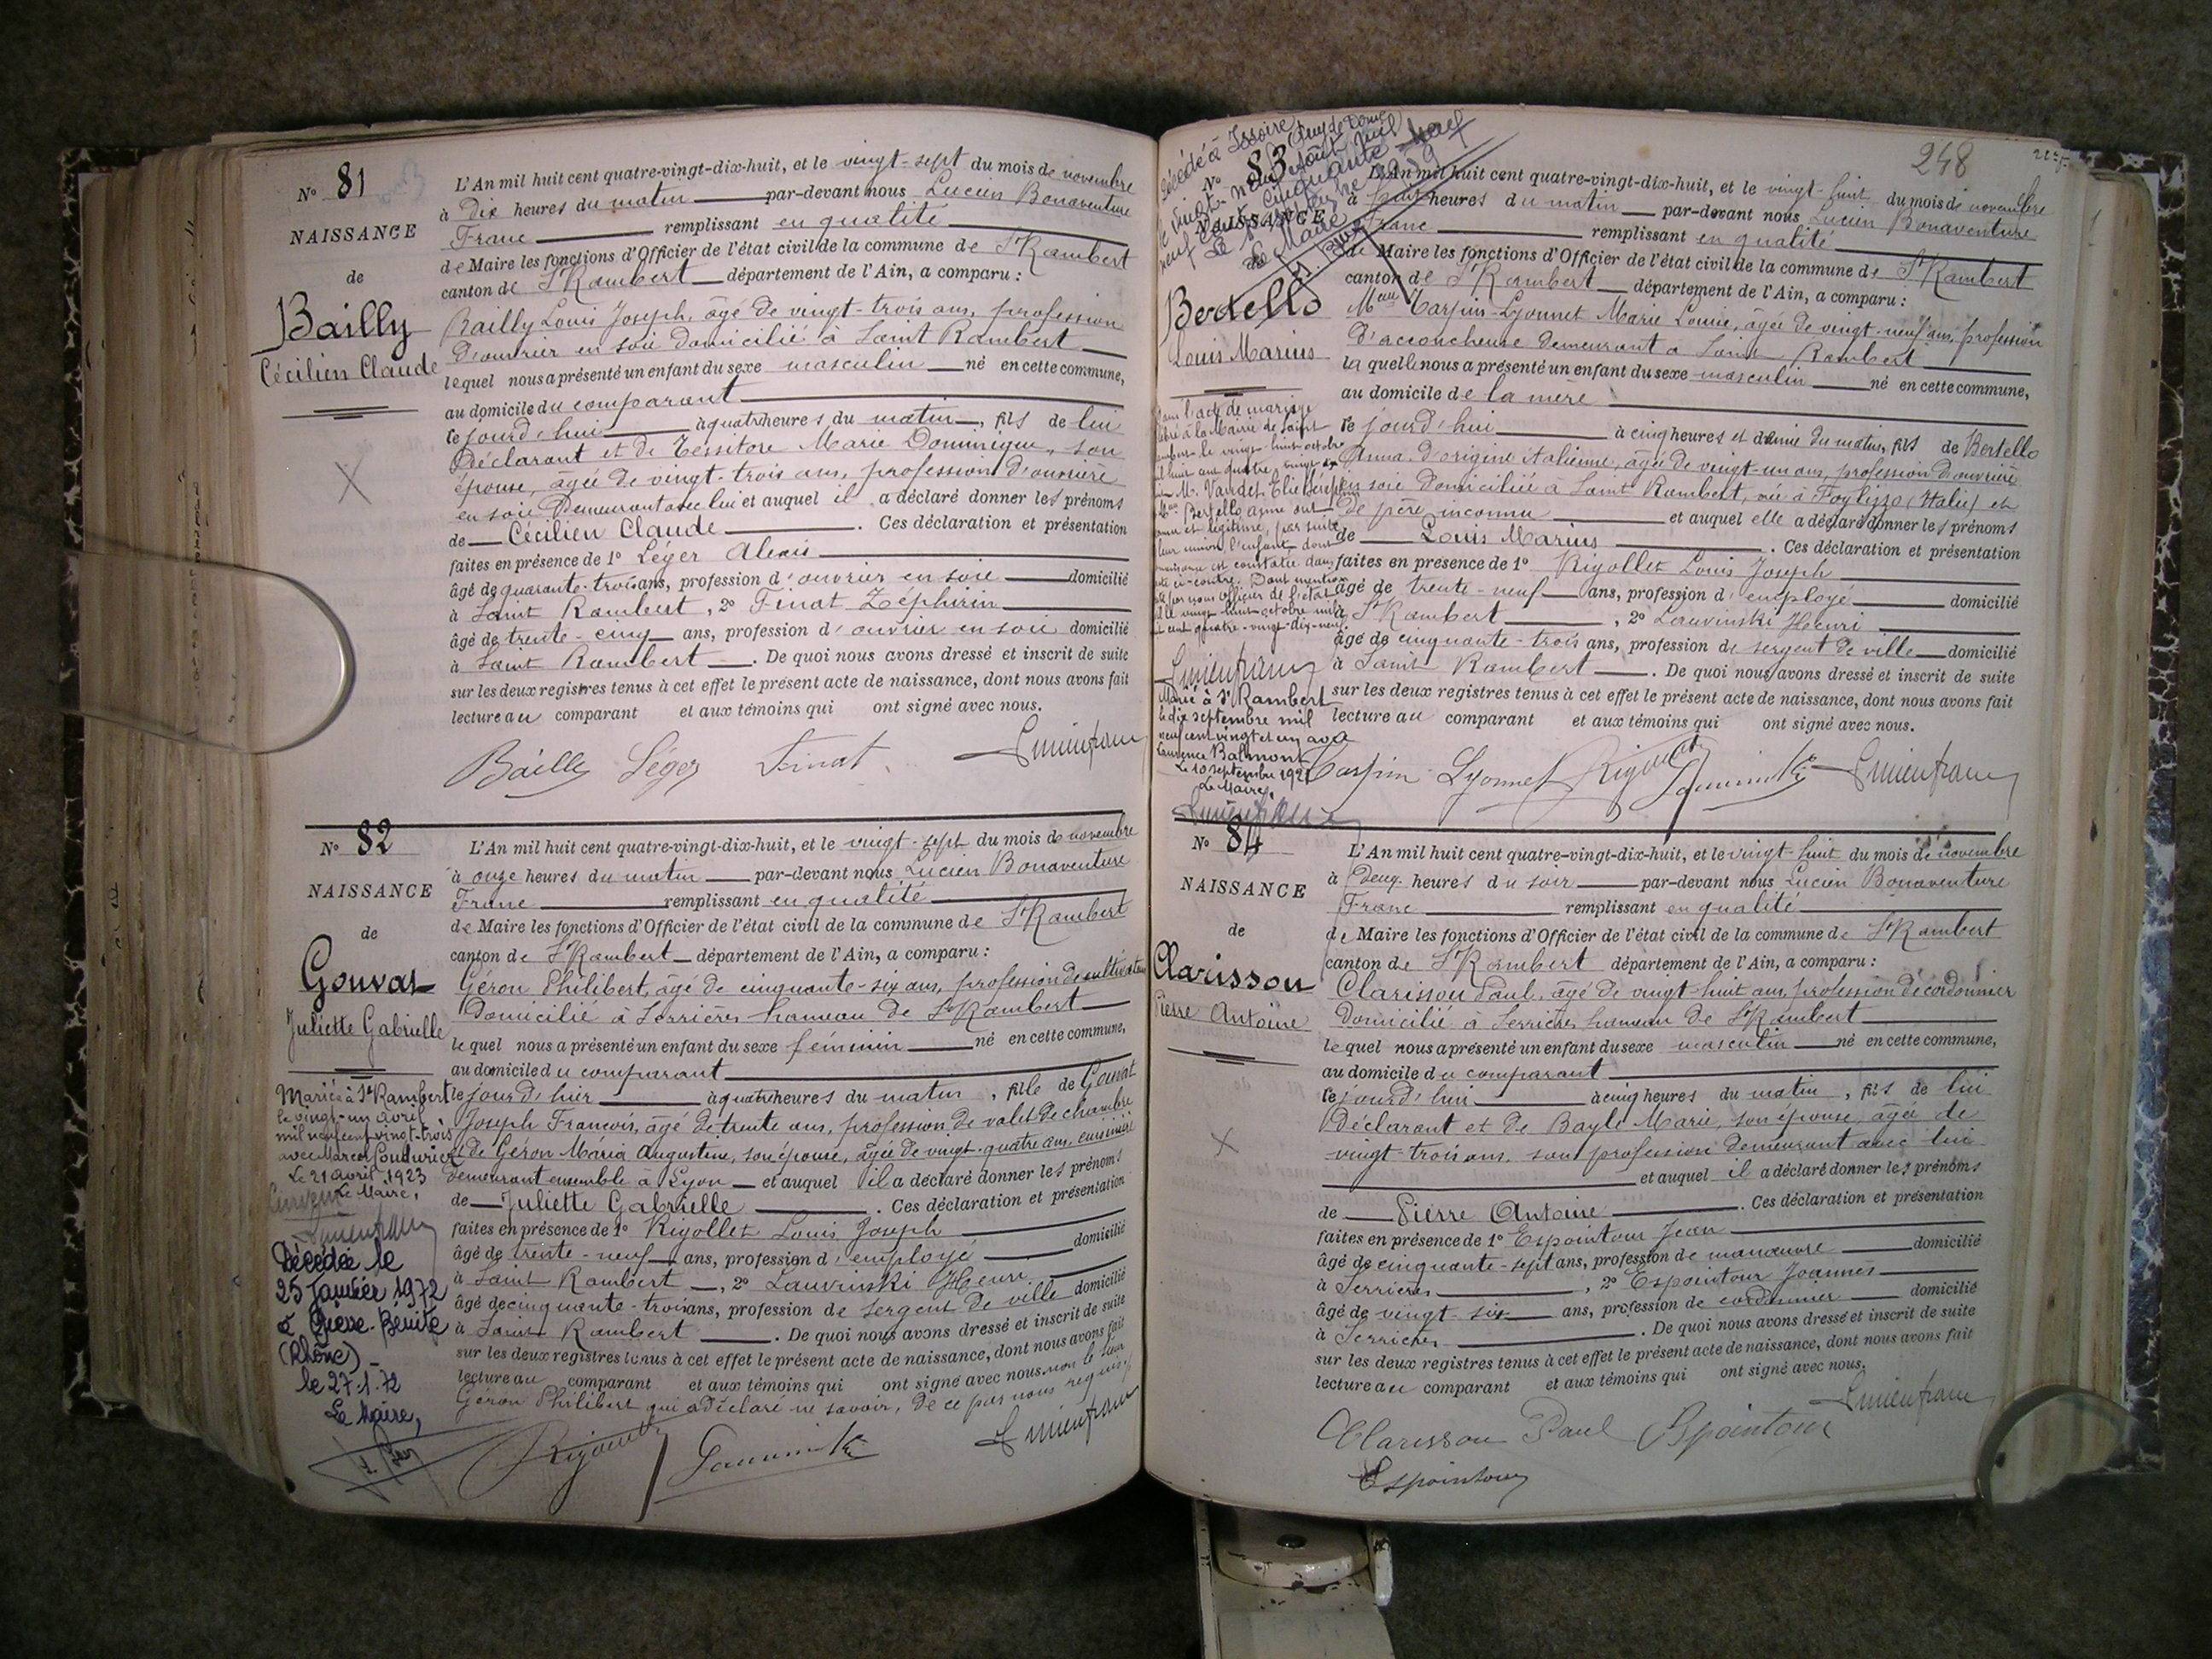 N° 81
NAISSANCE
de
Bailly
Cécilien Claude
L'An mil huit cent quatre-vingt-dix-huit, et le vingt-sept du mois de novembre
à Dix heures du matin par-devant nous Lucien Bonaventure
Franc remplissant en qualité
de Maire les fonctions d'Officier de l'état civil de la commune de St Rambert
canton de St Rambert département de l'Ain, a comparu :
Bailly Louis Joseph, âgé de vingt-trois ans, profession
d'ouvrier en soie domicilié à Saint Rambert
lequel nous a présenté un enfant du sexe masculin né en cette commune,
au domicile du comparant
ce jourd'hui à quatre heures du matin, fils de lui
Déclarant et de Tessitore Marie Dominique, son
épouse, âgée de vingt-trois ans, profession d'ouvrière
en soie Demeurant avec lui et auquel il a déclaré donner les prénoms
de Cécilien Claude. Ces déclaration et présentation
faites en présence de 1° Léger Alexis
âgé de quarante-trois ans, profession d'ouvrier en soie domicilié
à Saint Rambert, 2° Finat Zéphirin
âgé de trente-cinq ans, profession d'ouvrier en soie domicilié
à Saint Rambert. De quoi nous avons dressé et inscrit de suite
sur les deux registres tenus à cet effet le présent acte de naissance, dont nous avons fait
lecture au comparant et aux témoins qui ont signé avec nous.
Bailly Léger Finat Lucien franc
N° 82
NAISSANCE
de
Gouvat
Juliette Gabrielle
Mariée à St Rambert
le vingt-un avril
mil neuf cent vingt-trois
avec Marcel Couturier
Le 21 avril 1923
Le Maire,
Lucien franc
Décédée le
25 Janvier 1972
à Pierre-Bénite
(Rhône)
le 27.1.72
Le Maire,
L'An mil huit cent quatre-vingt-dix-huit, et le vingt-sept du mois de novembre
à onze heures du matin par-devant nous Lucien Bonaventure
Franc remplissant en qualité
de Maire les fonctions d'Officier de l'état civil de la commune de St Rambert
canton de St Rambert département de l'Ain, a comparu :
Géron Philibert, âgé de cinquante-six ans, profession de cultivateur
Domicilié à Serrières hameau de St Rambert
lequel nous a présenté un enfant du sexe féminin né en cette commune,
au domicile du comparant
le jour d'hier à quatre heures du matin, fille de Gouvat
Joseph François, âgé de trente ans, profession de valet de chambre
et de Géron Maria Augustine, son épouse, âgée de vingt-quatre ans, cuisinière
demeurant ensemble à Lyon et auquel il a déclaré donner les prénoms
de Juliette Gabrielle. Ces déclaration et présentation
faites en présence de 1° Rigollet Louis Joseph
âgé de trente-neuf ans, profession d'employé domicilié
à Saint Rambert, 2° Lauvinski Henri
âgé de cinquante-trois ans, profession de sergent de ville domicilié
à Saint Rambert. De quoi nous avons dressé et inscrit de suite
sur les deux registres tenus à cet effet le présent acte de naissance, dont nous avons fait
lecture au comparant et aux témoins qui ont signé avec nous non le sieur
Géron Philibert qui a déclaré ne savoir, de ce par nous requis.
Rigollet Lauvinski Lucien franc
248
Décédé à Issoire
(Puy de Dôme)
N° 83
NAISSANCE
Bertello
Louis Marius
Dans l'acte de mariage
célébré à la Mairie de Saint
Rambert le vingt-huit octobre
M. Vaudet Elie
Bertello Anna ont
reconnu et légitimé, par suite
de leur union l'enfant dont
naissance est constatée dans
l'acte ci-contre. Dont mention
faite par nous officier de l'état
civil le vingt-huit octobre mil
huit cent quatre-vingt-dix-neuf
Lucien franc
Marié à St Rambert
le dix septembre mil
neuf cent vingt et un avec
Laurence Balmont
Le 10 septembre 1921
Le Maire,
Lucien franc
L'An mil huit cent quatre-vingt-dix-huit, et le vingt-huit du mois de novembre
à huit heures du matin par-devant nous Lucien Bonaventure
Franc remplissant en qualité
de Maire les fonctions d'Officier de l'état civil de la commune de St Rambert
canton de St Rambert département de l'Ain, a comparu :
Carpin-Lyonnet Marie Louise, âgée de vingt-neuf ans, profession
d'accoucheuse demeurant à Saint Rambert
laquelle nous a présenté un enfant du sexe masculin né en cette commune,
au domicile de la mère
ce jourd'hui à cinq heures et demie du matin, fils de Bertello
Anna d'origine italienne, âgée de vingt-un ans, profession d'ouvrière
en soie domiciliée à Saint Rambert, née à Foglizzo (Italie) et
de père inconnu et auquel elle a déclaré donner les prénoms
de Louis Marius. Ces déclaration et présentation
faites en présence de 1° Rigollet Louis Joseph
âgé de trente-neuf ans, profession d'employé domicilié
à St Rambert, 2° Lauvinski Henri
âgé de cinquante-trois ans, profession de sergent de ville domicilié
à Saint Rambert. De quoi nous avons dressé et inscrit de suite
sur les deux registres tenus à cet effet le présent acte de naissance, dont nous avons fait
lecture au comparant et aux témoins qui ont signé avec nous.
Carpin Lyonnet Rigollet Lauvinski Lucien franc
N° 84
NAISSANCE
de
Clarisson
Pierre Antoine
L'An mil huit cent quatre-vingt-dix-huit, et le vingt-huit du mois de novembre
à Deux heures du soir par-devant nous Lucien Bonaventure
Franc remplissant en qualité
de Maire les fonctions d'Officier de l'état civil de la commune de St Rambert
canton de St Rambert département de l'Ain, a comparu :
Clarisson Paul, âgé de vingt-huit ans, profession de cordonnier
Domicilié à Serrières hameau de St Rambert
lequel nous a présenté un enfant du sexe masculin né en cette commune,
au domicile du comparant
ce jourd'hui à cinq heures du matin, fils de lui
Déclarant et de Bayle Marie, son épouse, âgée de
vingt-trois ans, sans profession demeurant avec lui
et auquel il a déclaré donner les prénoms
de Pierre Antoine. Ces déclaration et présentation
faites en présence de 1° Espointour Jean
âgé de cinquante-sept ans, profession de manœuvre domicilié
à Serrières, 2° Espointour Joannès
âgé de vingt-six ans, profession de cordonnier domicilié
à Serrières. De quoi nous avons dressé et inscrit de suite
sur les deux registres tenus à cet effet le présent acte de naissance, dont nous avons fait
lecture au comparant et aux témoins qui ont signé avec nous.
Lucien franc
Clarisson Paul Espointour
Espointour